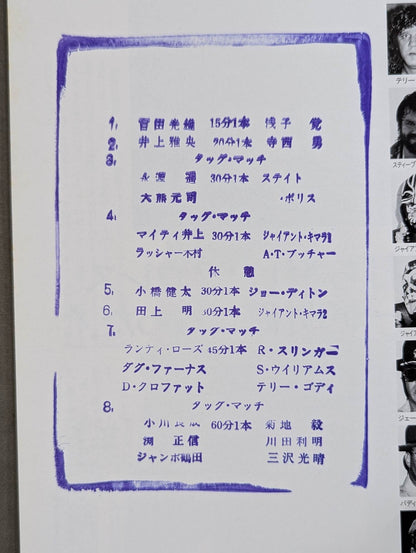 1. 百田光雄 15分1本 浅子 覚
2. 井上雅央 20分1本 寺西 勇
3. タッグ・マッチ
永源 遙 30分1本 ステイト
大熊元司 ・ボリス
4. タッグ・マッチ
マイティ井上 30分1本 ジャイアント・キマラ
ラッシャー木村 A・T・ブッチャー
休 憩
5. 小橋健太 30分1本 ジョー・ディトン
6. 田上 明 30分1本 ジャイアント・キマラ2
7. タッグ・マッチ
ランディ・ローズ 45分1本 R・スリンガー
ダグ・ファーナス S・ウイリアムス
D・クロファット テリー・ゴディ
8. タッグ・マッチ
小川良成 60分1本 菊地 毅
渕 正信 川田利明
ジャンボ鶴田 三沢光晴
テリー
スティーブ
ジャイア
ジャイ
ジェー
バディ